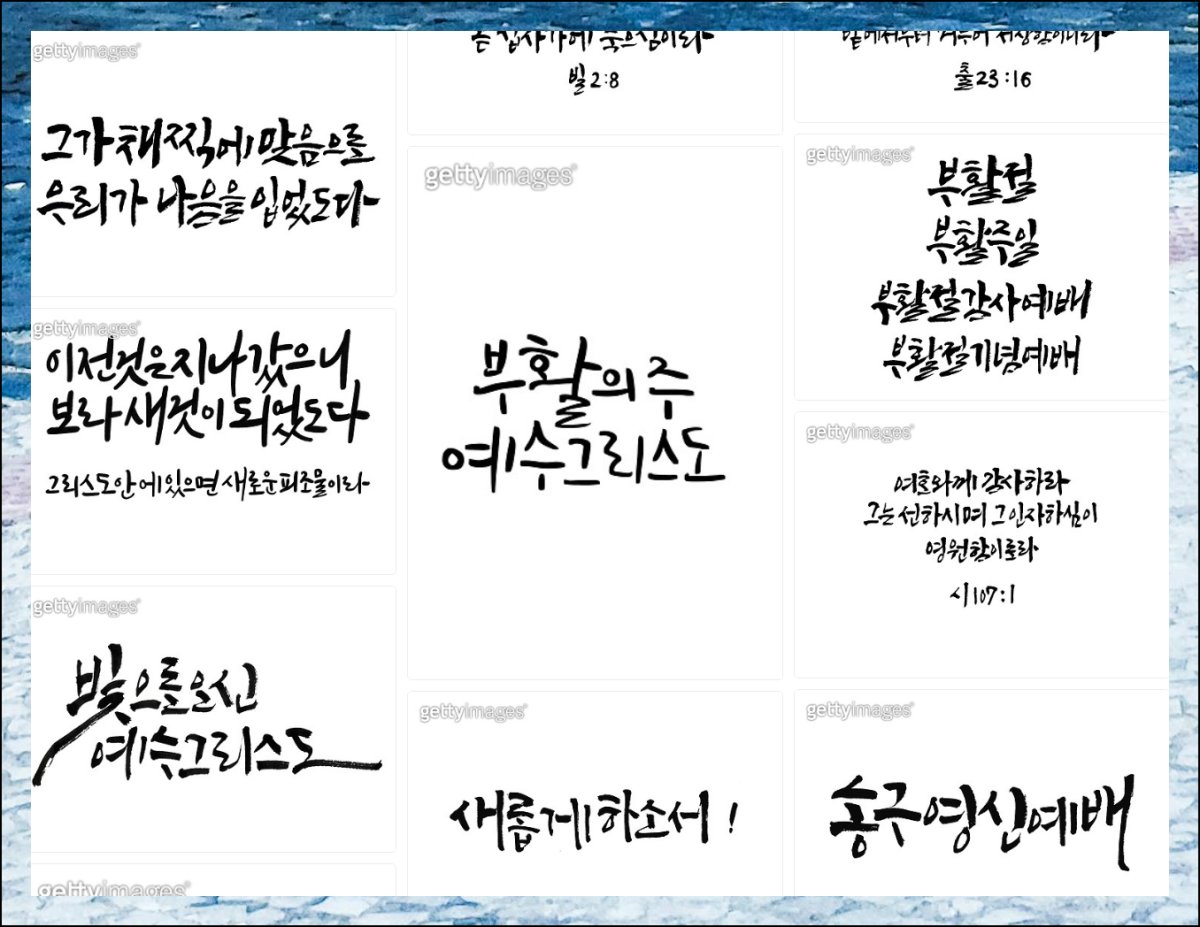 gettyimages®
그가 채찍에 맞음으로
우리가 나음을 입었도다
gettyimages®
이전것은 지나갔으니
보라 새것이 되었도다
그리스도안에 있으면 새로운 피조물이라
gettyimages®
빛으로 오신
예수그리스도
gettyimages®
는 십자가에 죽으심이라
빌 2:8
gettyimages®
부활의 주
예수그리스도
gettyimages®
새롭게 하소서!
밭에서부터 거두어 저장함이니라
출 23:16
gettyimages®
부활절
부활주일
부활절감사예배
부활절기념예배
gettyimages®
여호와께 감사하라
그는 선하시며 그 인자하심이
영원함이로다
시 107:1
gettyimages®
송구영신예배